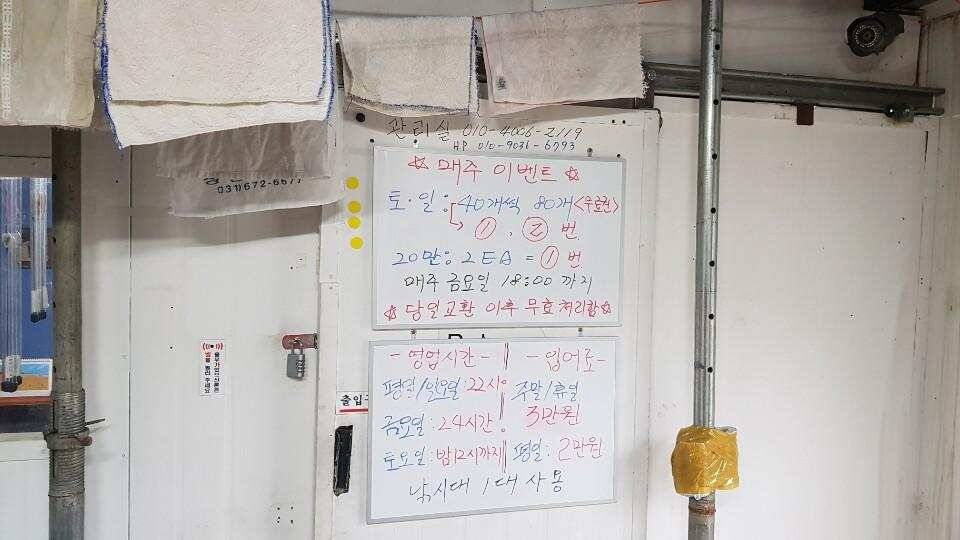 관리실 010-4006-2119
HP 010-9036-6793
☆ 매주 이벤트 ☆
토·일: 40개씩 80개 <무료권>
→ ①, ② 번
20만: 2EA = ①번
매주 금요일 18:00 까지
☆ 당일교환 이후 무효처리함 ☆
031)672-6677
- 영업시간 -
평일/일요일: 22시
금요일: 24시간
토요일: 밤12시까지
- 입어료 -
주말/휴일
3만원
평일: 2만원
낚시대 1대 사용
출입